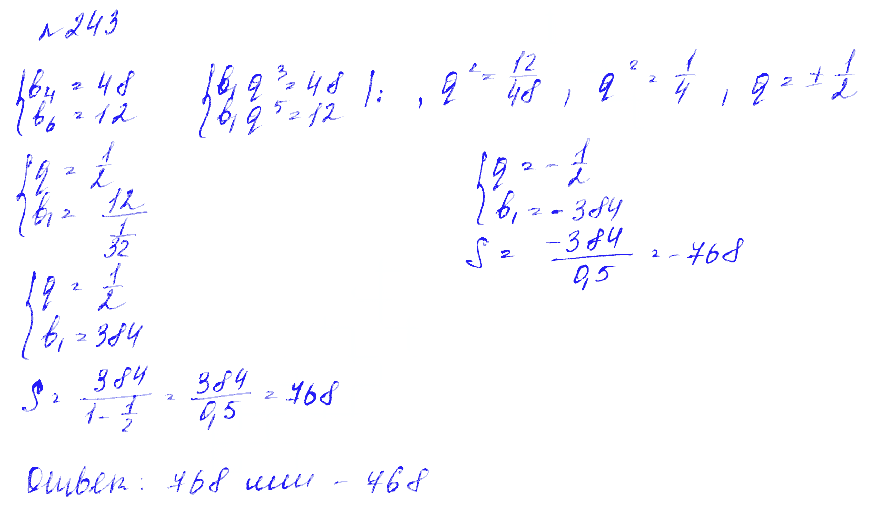 №243
{b₄ = 48 {b₁q³ = 48 |: , q² = 12/48 , q² = 1/4 , q = ± 1/2
{b₆ = 12 {b₁q⁵ = 12
{q = 1/2
{b₁ = 12/(1/32)
{q = 1/2
{b₁ = 384
S = 384/(1 - 1/2) = 384/0,5 = 768
{q = - 1/2
{b₁ = - 384
S = -384/0,5 = - 768
Ответ: 768 или - 768